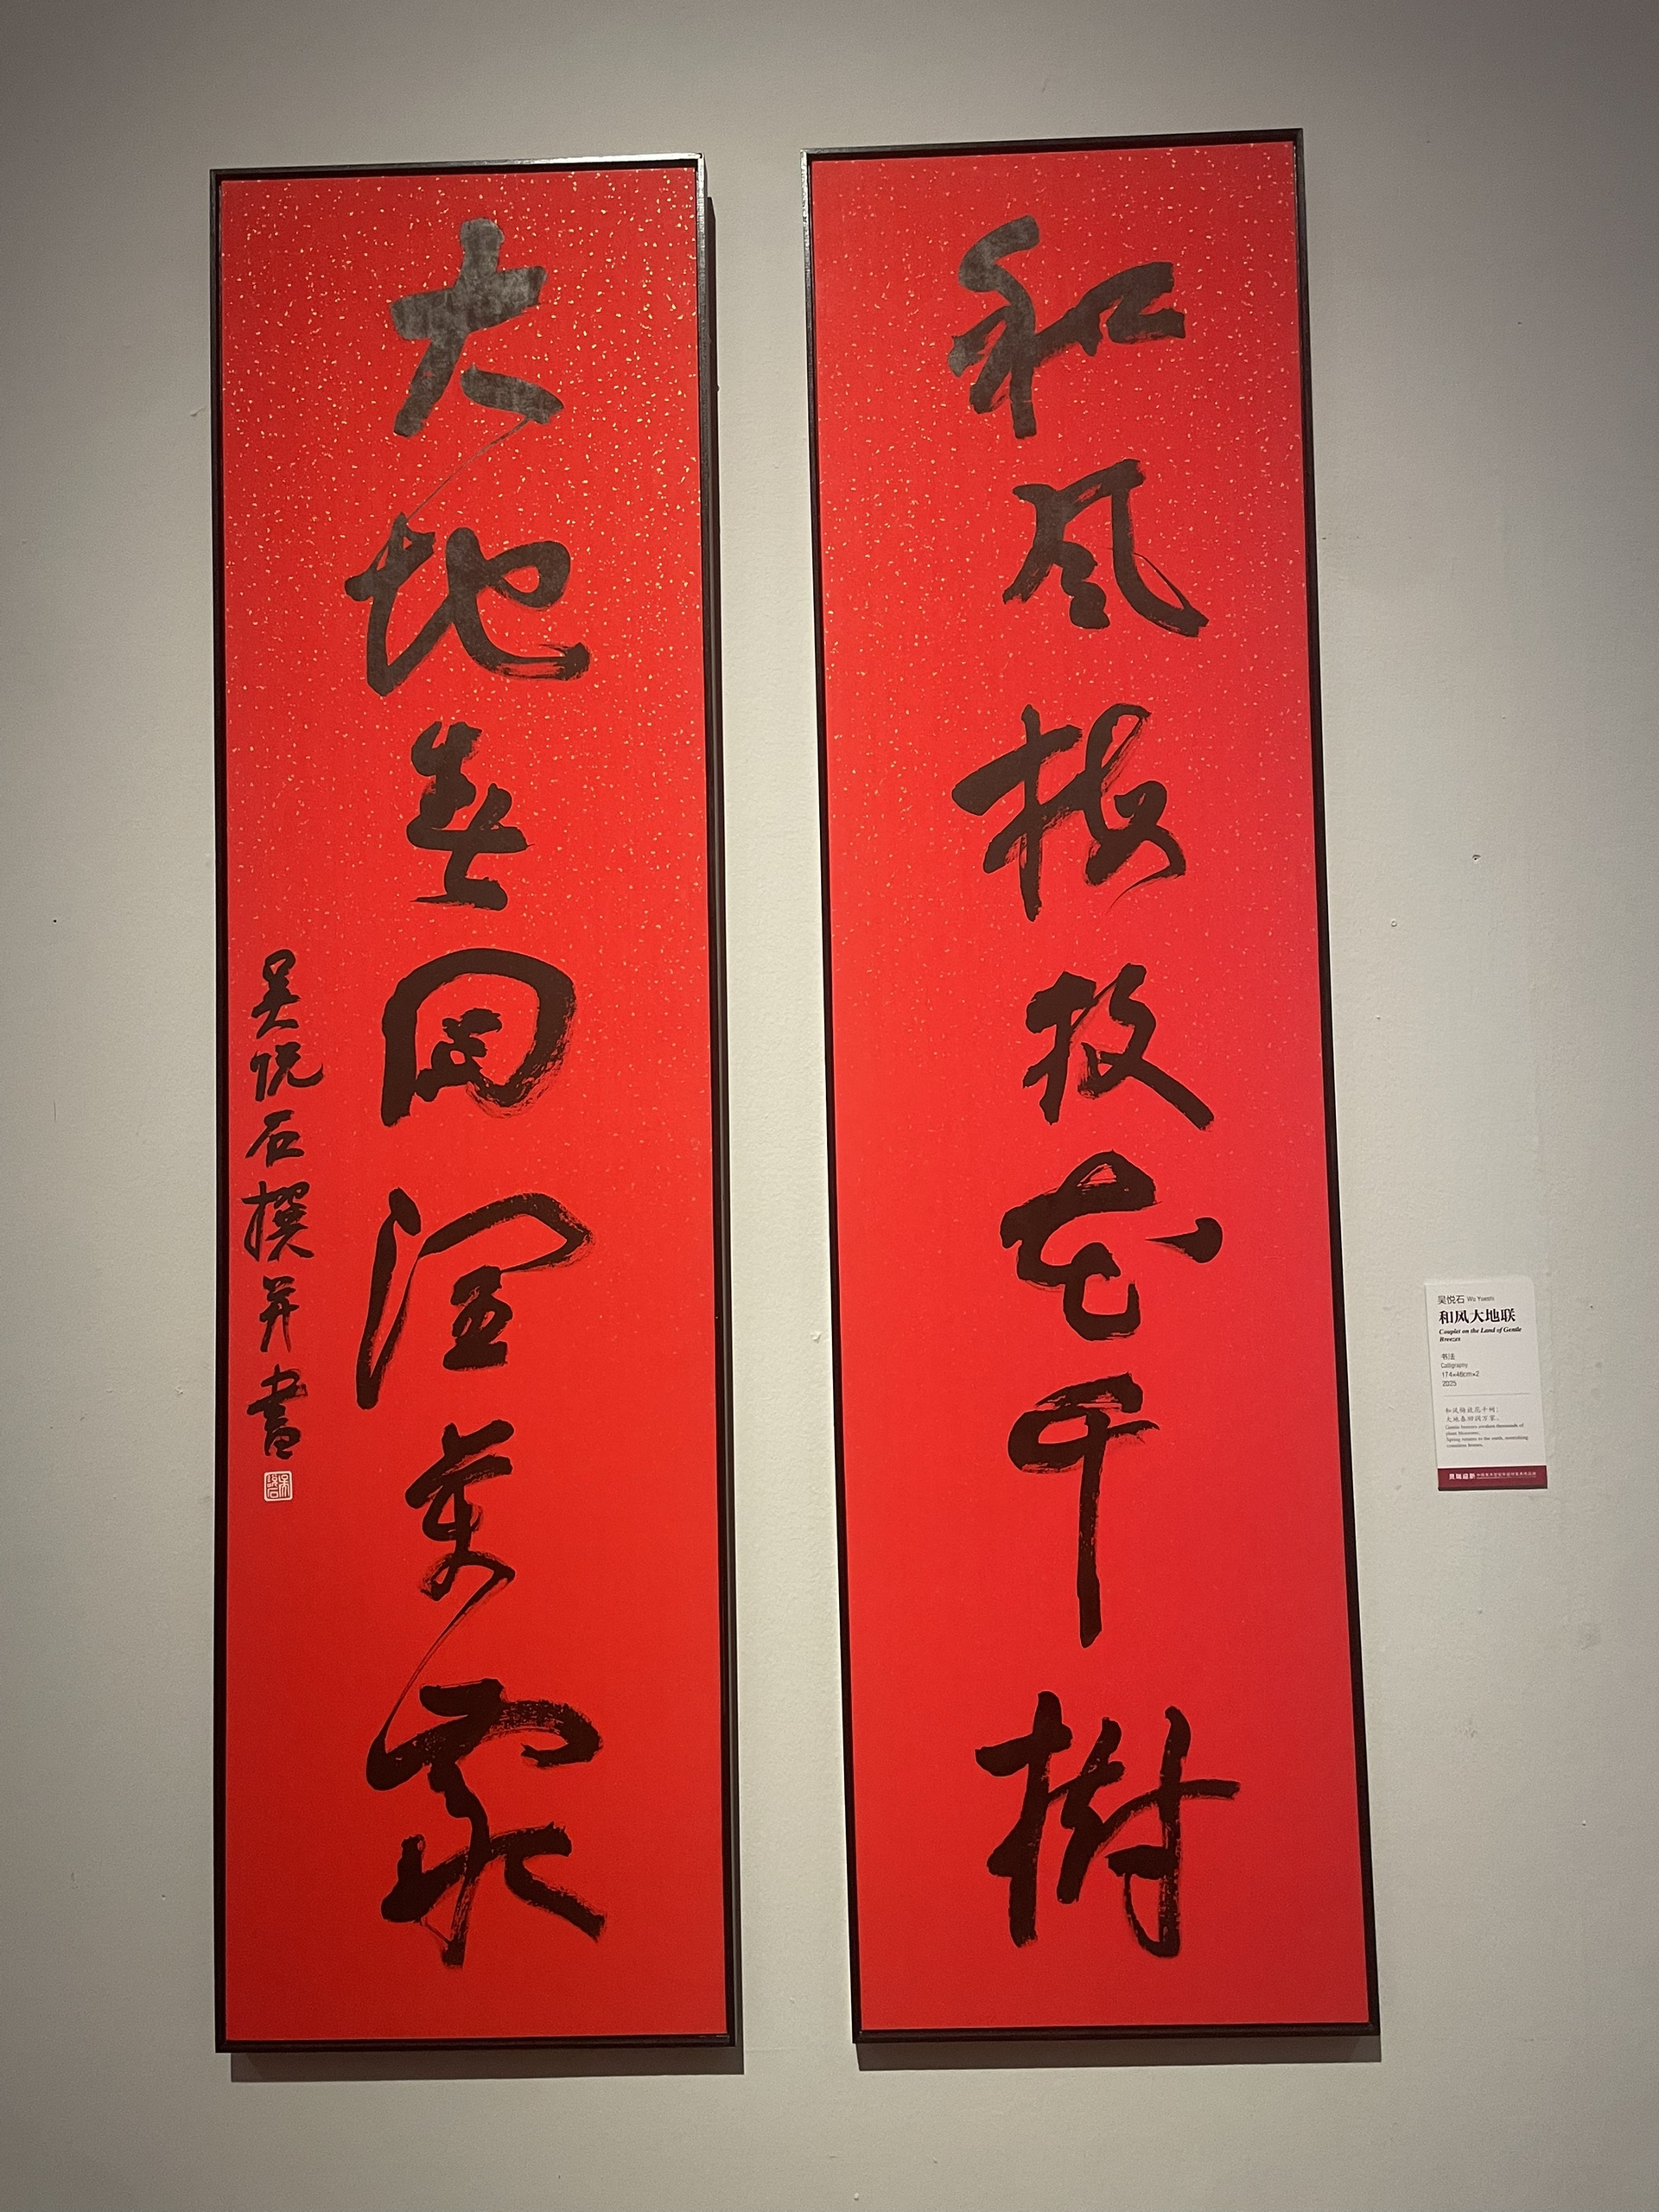 和风梅放花千树
大地春回润万家
吴悦石撰并书
吴悦石 Wu Yueshi
和风大地联
Couplet on the Land of Gentle
Breezes
书法
Calligraphy
174×48cm×2
2025
和风梅放花千树;
大地春回润万家。
Gentle breezes awaken thousands of
plum blossoms;
Spring returns to the earth, nourishing
countless homes.